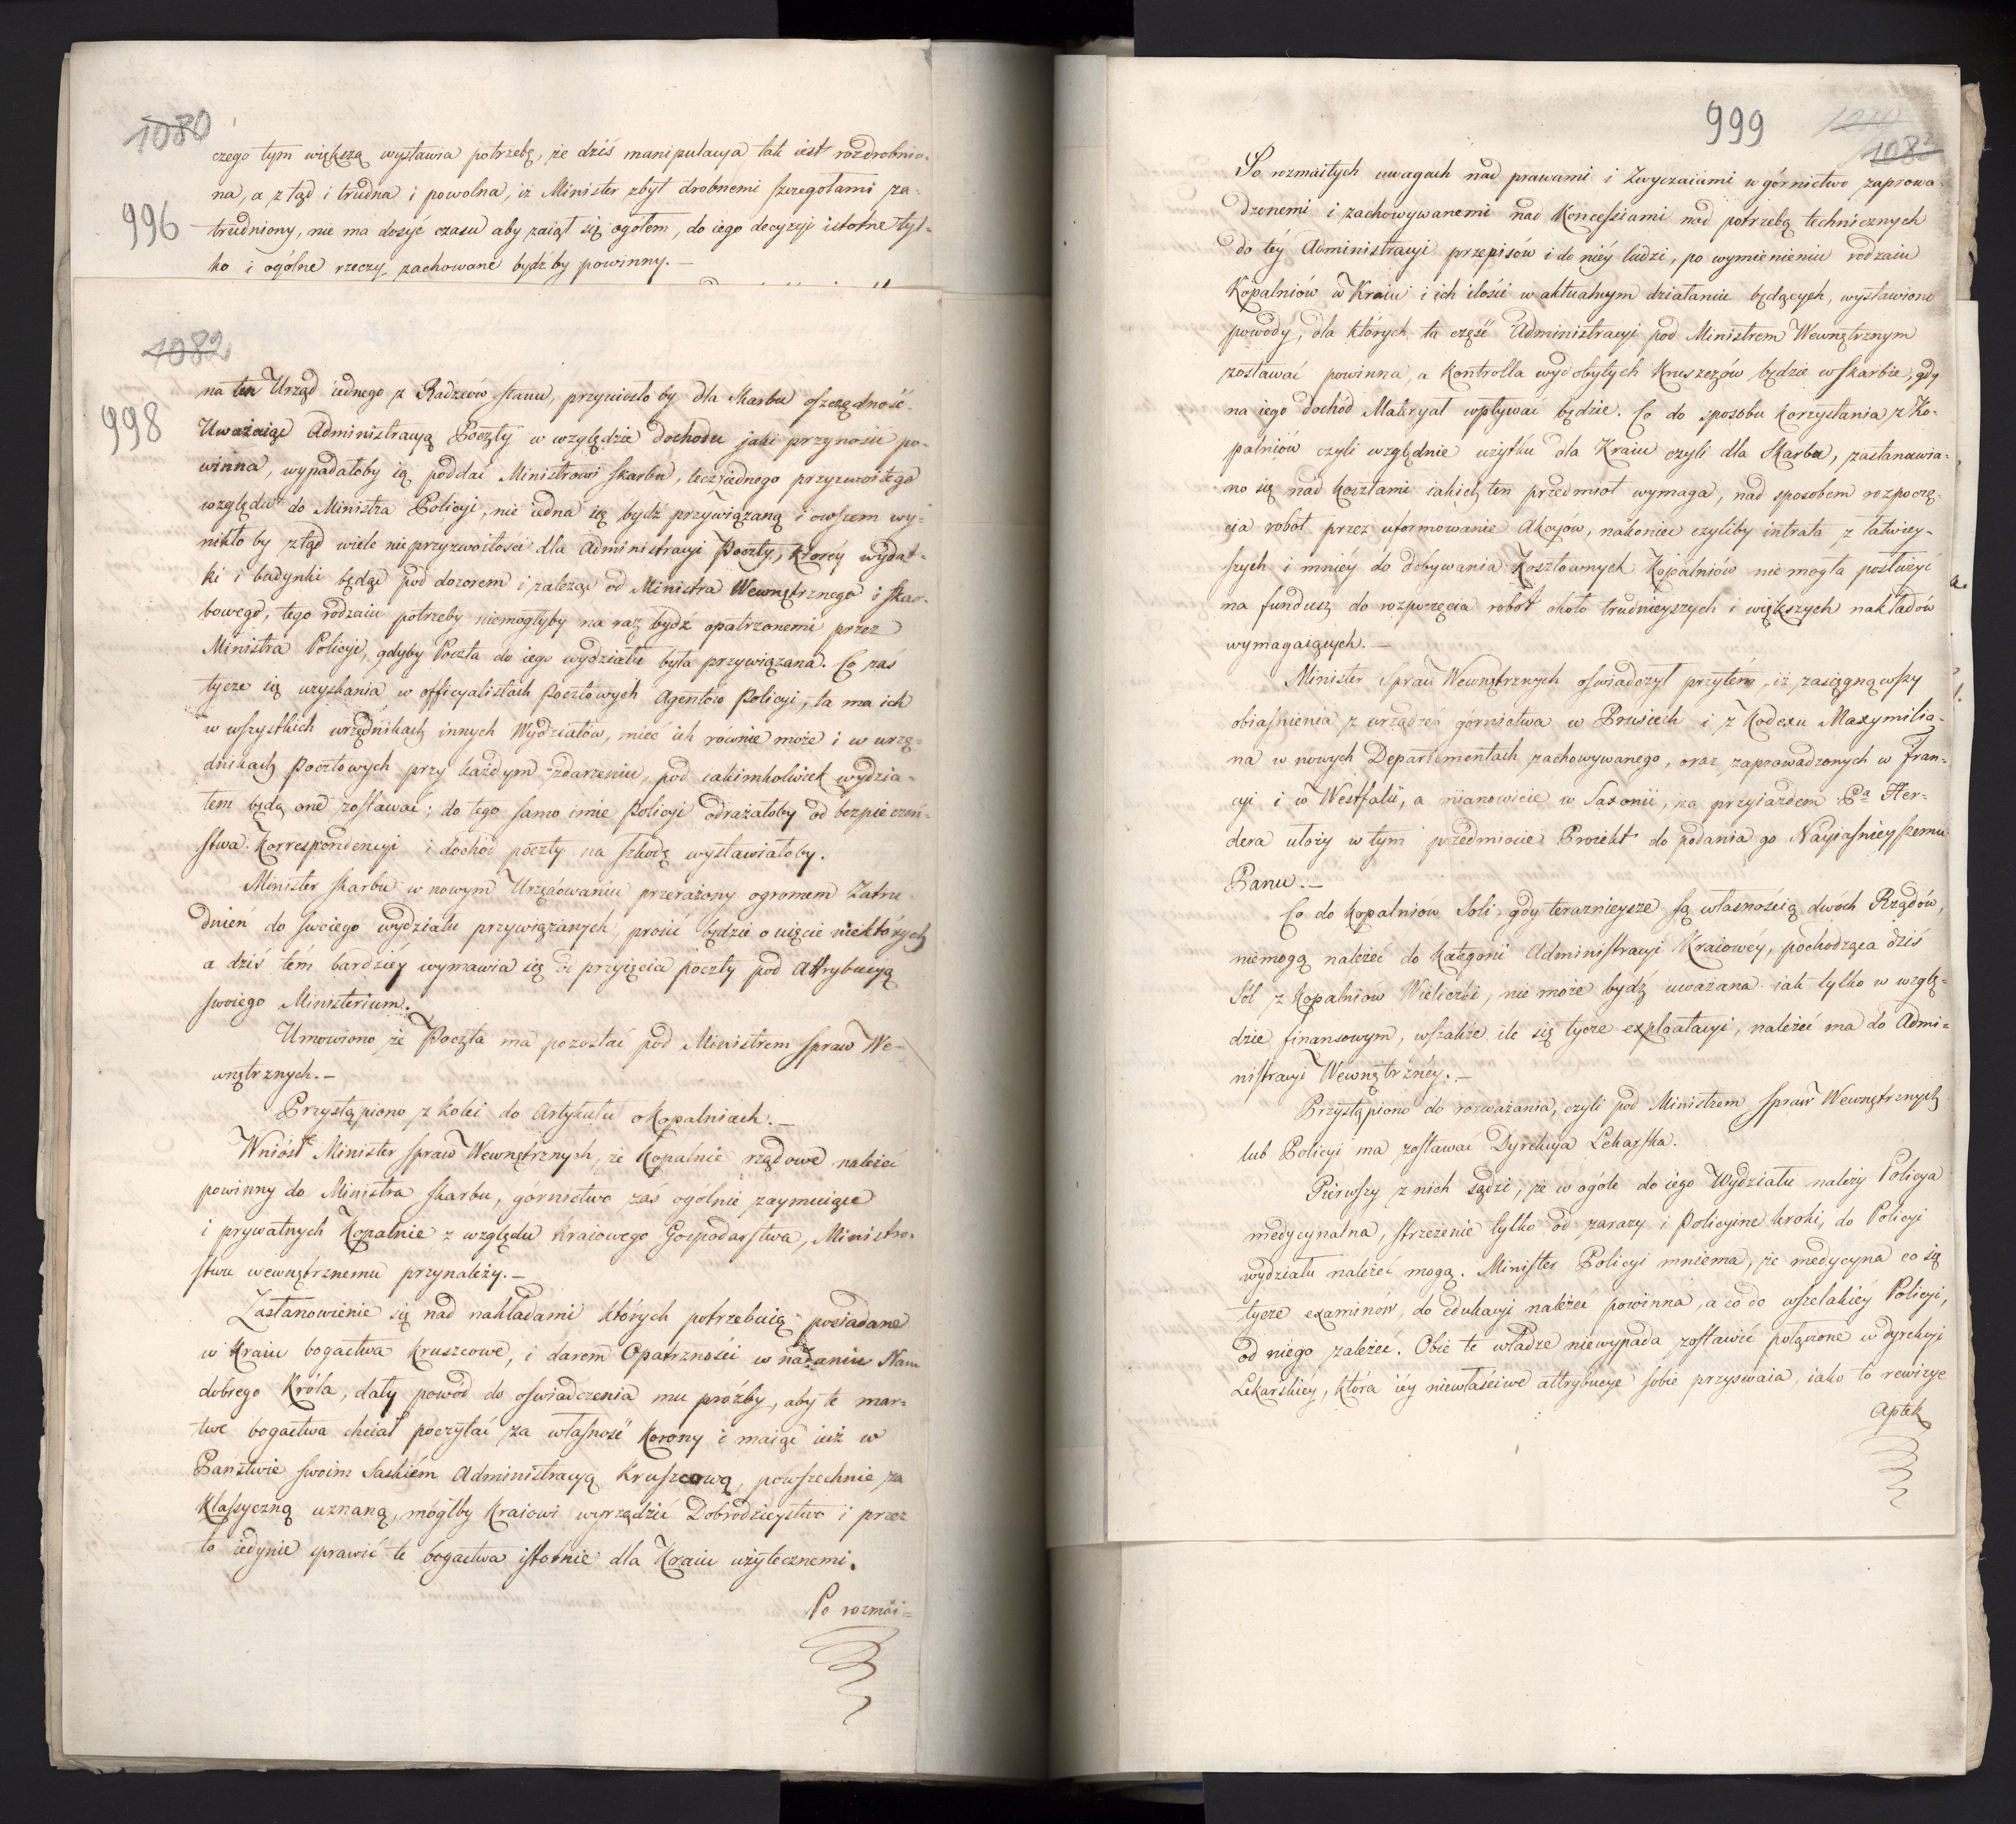 1080
czego tym większą wystawia potrzebę, że dziś manipulacya tak iest rozdrobnio-
na, a ztąd i trudna i powolna, iż Minister zbyt drobnemi szczegółami za-
996
trudniony, nie ma dosyć czasu aby zaiął się ogółem, do iego decyzyi istotne tyl-
ko i ogólne rzeczy zachowane bydź by powinny. —
1082
998
na ten Urząd iednego z Radzców stanu, przyniosło by dla Skarbu oszczędność.
Uważaiąc Administracyą Poczty w względzie dochodu jaki przynosić po-
winna, wypadałoby ią poddać Ministrowi Skarbu, lecz iednego przyzwoitego
względu do Ministra Policyi, nie iedna się bydź przywiązaną i owszem wy-
nikło by ztąd wiele nieprzyzwoitości dla Administracyi Poczty, którey wydat-
ki i budynki będąc pod dozorem i zależąc od Ministra Wewnętrznego i Skar-
bowego, tego rodzaiu potrzeby niemogłyby na raz bydź opatrzonemi przez
Ministra Policyi, gdyby Poczta do iego wydziału była przywiązana. Co zaś
tycze się uzyskania w officyalistach Pocztowych Agentów Policyi, ta ma ich
w wszystkich urzędnikach innych Wydziałów, mieć ich równie może i w urzę-
dnikach Pocztowych przy każdym zdarzeniu, pod iakimkolwiek wydzia-
łem będą one zostawać; do tego samo imie Policyi odrażałoby od bezpieczeń-
stwa Korrespondencyi i dochód poczty na szkodę wystawiałoby.
Minister Skarbu w nowym Urzędowaniu przerażony ogromem Zatru-
dnień do swoiego wydziału przywiązanych, prosić będzie o uięcie niektórych
a dziś tém bardziéy wymawia się od przyięcia poczty pod Attrybucyą
swoiego Ministerium.
Umówiono że Poczta ma pozostać pod Ministrem Spraw We-
wnętrznych. —
Przystąpiono z kolei do Artykułu o Kopalniach. —
Wniósł Minister Spraw Wewnętrznych, że Kopalnie rządowe należeć
powinny do Ministra Skarbu, górnictwo zaś ogólnie zaymuiące
i prywatnych Kopalnie z względu kraiowego Gospodarstwa, Ministe-
stwu wewnętrznemu przynależy. —
Zastanowienie się nad nakładami których potrzebuią posiadane
w Kraiu bogactwa kruszcowe, i darem Opatrzności w nadaniu Nam
dobrego Króla, dały powód do oświadczenia mu prośby, aby te mar-
twe bogactwa chciał poczytać za własność Korony i maiąc iuż w
Państwie swoim Saskiém Administracyą Kruszcową, powszechnie za
Klassyczną uznaną, mógłby Kraiowi wyrządzić Dobrodzieystwo i przez
to iedynie sprawić te bogactwa istotnie dla Kraiu użytecznemi.
Po rozmai=
999
1083
Po rozmaitych uwagach nad prawami i Zwyczaiami w górnictwo zaprowa-
dzonemi i zachowywanemi nad Koncessiami nad potrzebą technicznych
do téy Administracyi przepisów i do niéy ludzi, po wymienieniu rodzaiu
Kopalniów w Kraiu i ich ilości w aktualnym działaniu będących, wystawiono
powody, dla których ta część Administracyi pod Ministrem Wewnętrznym
zostawać powinna, a Kontrolla wydobytych Kruszczów będzie w Skarbie, gdy
na iego dochód Materyał wpływać będzie. Co do sposobu korzystania z Ko-
palniów czyli względnie użytku dla Kraiu czyli dla Skarbu, zastanawia-
no się nad kosztami iakich ten przedmiot wymaga, nad sposobem rozpoczę-
cia robot przez uformowanie Akcyów, nakoniec czyliby intrata z łatwiey-
szych i mniéy do dobywania Kosztownych Kopalniów nie mogła posłużyć
na fundusz do rozpoczęcia robót około trudnieyszych i większych nakładów
wymagaiących. —
Minister Spraw Wewnętrznych oświadczył przytém, iż zasięgnąwszy
obiaśnienia z urządzeń górnictwa w Prusiech i z Kodexu Maxymilia-
na w nowych Departamentach zachowywanego, oraz zaprowadzonych w Fran-
cyi i w Westfalii, a mianowicie w Saxonii, za przyiazdem Pa Her-
dera ułoży w tym przedmiocie Proiekt do podania go Nayiaśnieyszemu
Panu. —
Co do kopalniów Soli, gdy teraznieysze są własnością dwóch Rządów,
niemogą należeć do kategorii Administracyi Kraiowéy, pochodząca dziś
Sól z Kopalniów Wieliczki, nie może bydź uważana iak tylko w wzglę-
dzie finansowym, wszakże ile się tycze exploatacyi, należeć ma do Admi-
nistracyi Wewnętrznéy. —
Przystąpiono do rozważania, czyli pod Ministrem Spraw Wewnętrznych
lub Policyi ma zostawać Dyrekcya Lekarska.
Pierwszy z nich sądzi, że w ogóle do iego Wydziału należy Policya
medycynalna, strzeżenie tylko od zarazy i Policyine kroki, do Policyi
wydziału należeć mogą. Minister Policyi mniema, że medycyna co się
tycze examinów, do edukacyi należeć powinna, a co do wszelakiéy Policyi,
od niego zależeć. Obie te władze niewypada zostawić połączone w dyrekcyi
Lekarskiéy, która iéy niewłaściwe attrybucye sobie przyswaia, iako to rewizye
Aptek